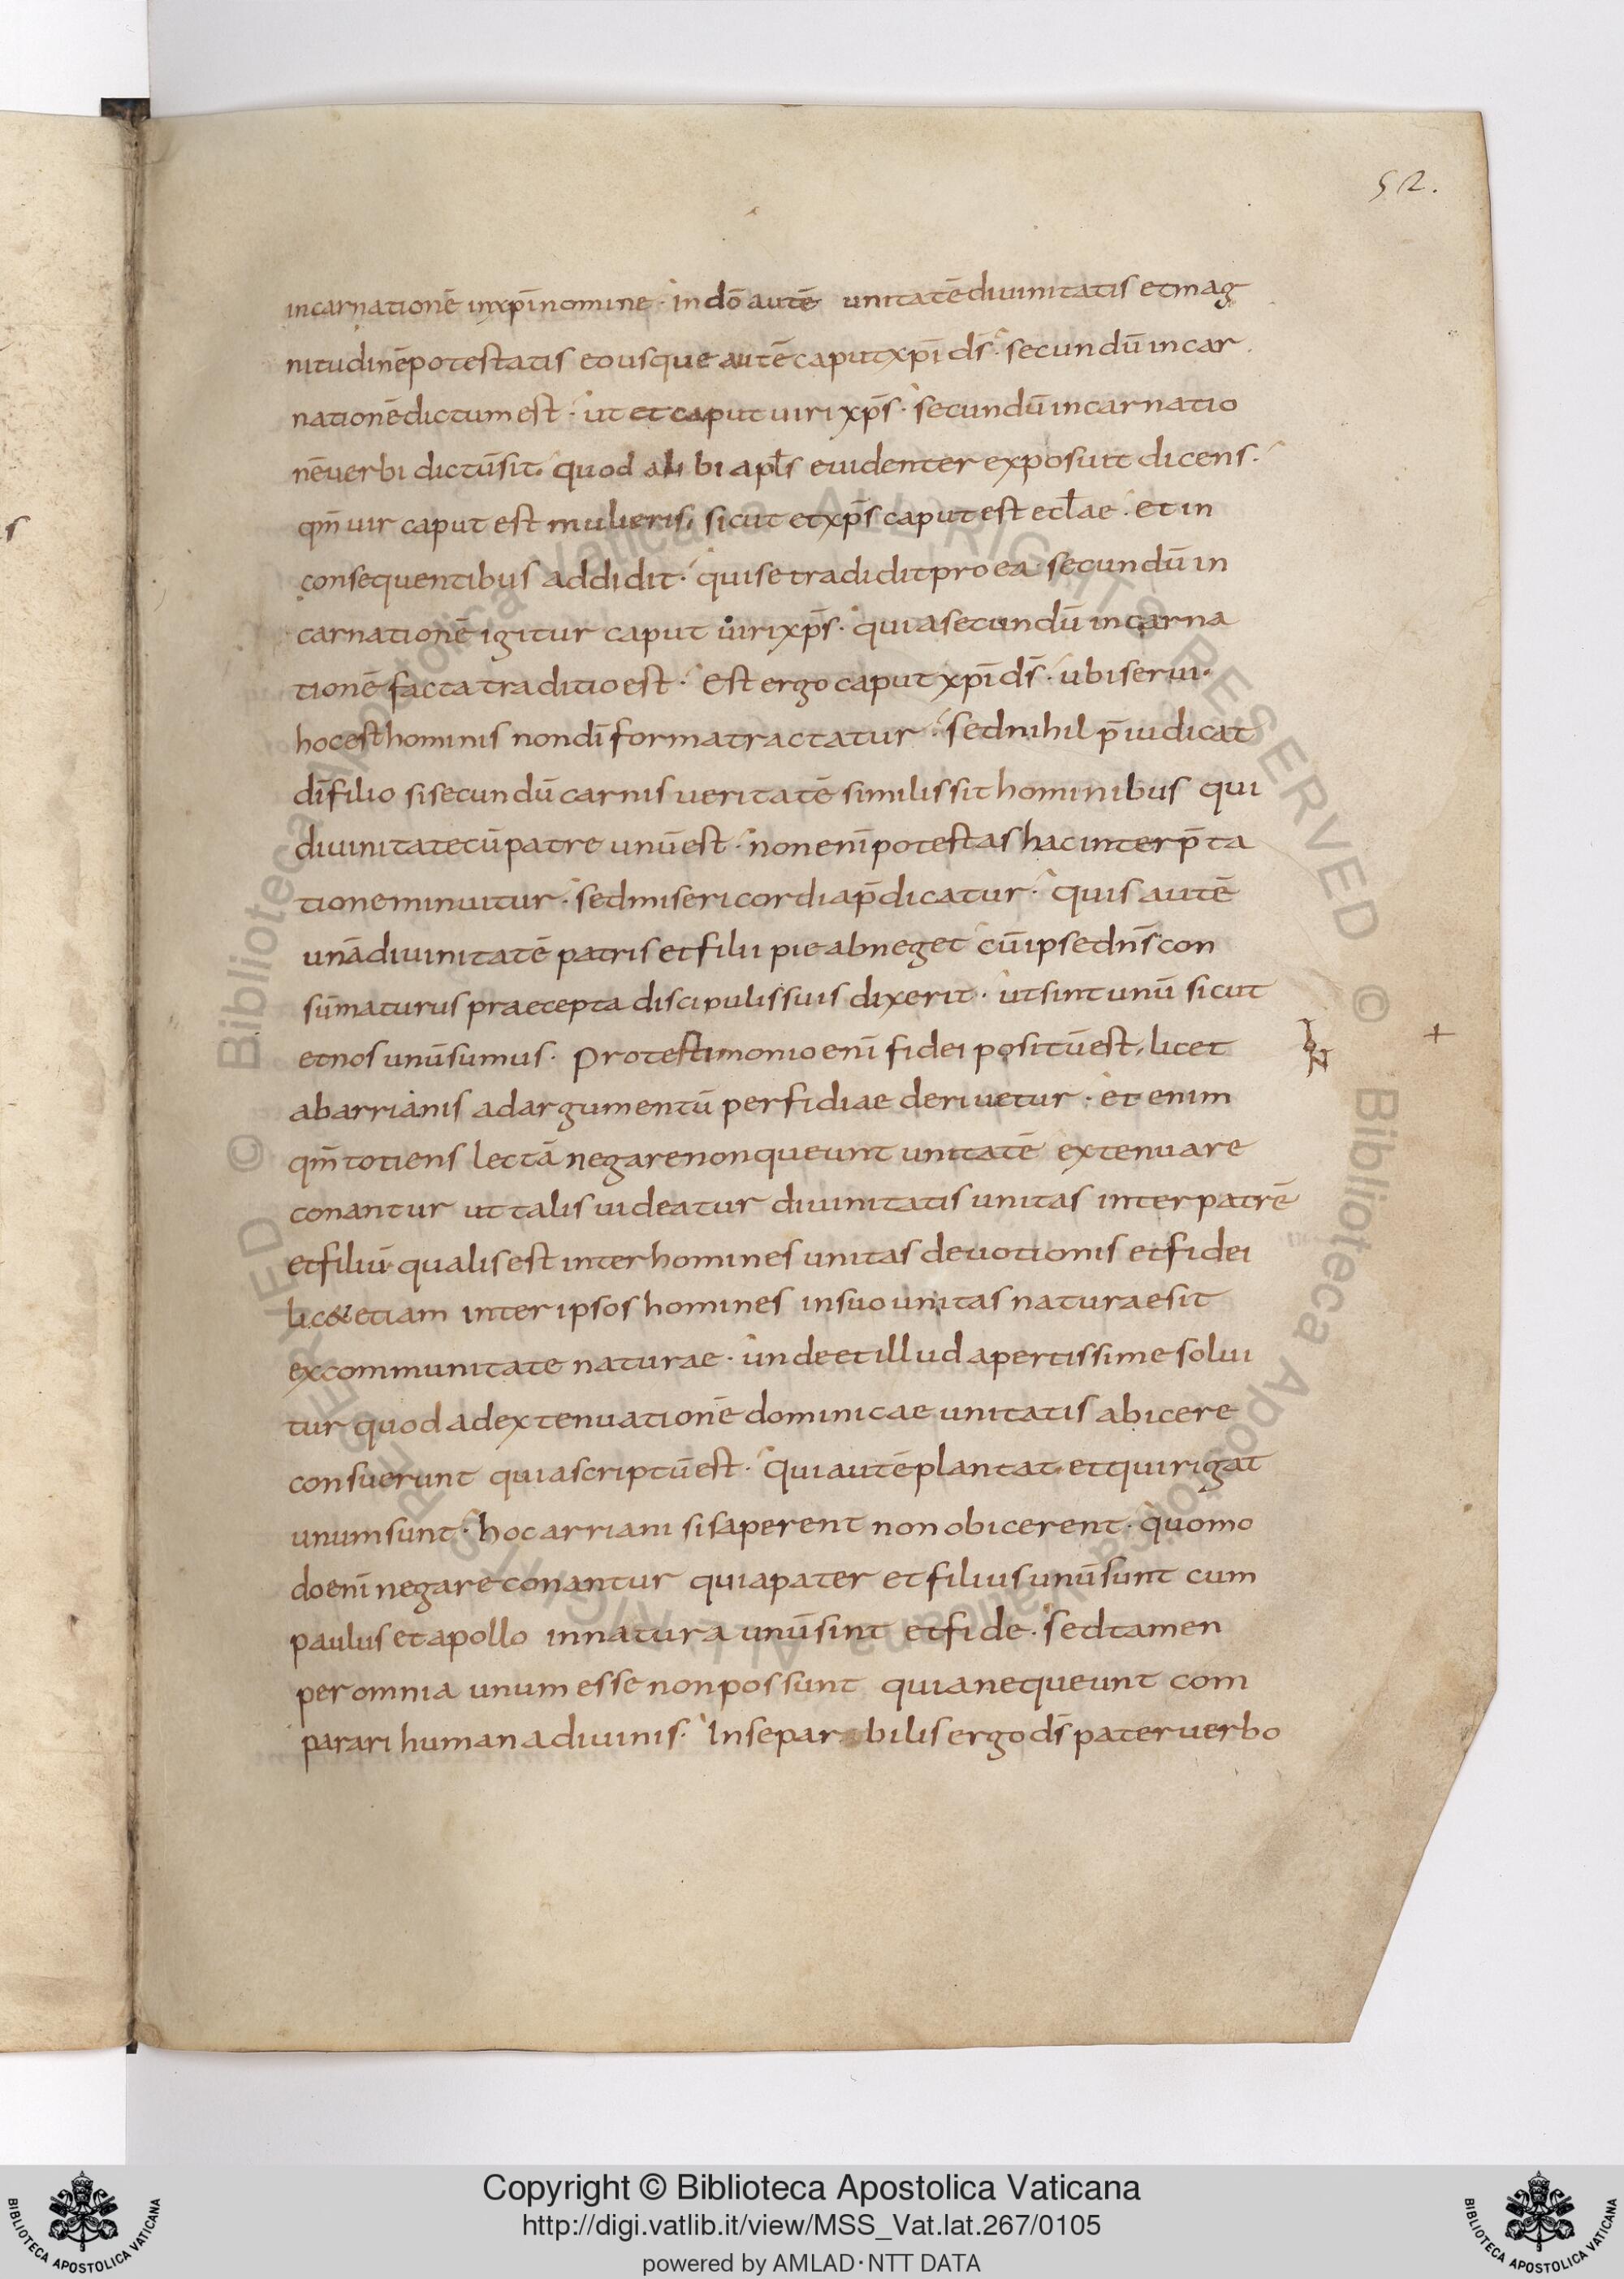 52.
incarnationē inxp̄i nomine · in dō autē unitatē diuinitatis et mag
nitudinē potestatis eousque autē caput xp̄i ds̄ · secundū incar
nationē dictum est · ut et caput uiri xp̄s · secundū incarnatio
nē uerbi dictū sit · quod alibi apl̄s euidenter exposuit dicens ·
qm̄ uir caput est mulieris, sicut et xp̄s caput est ecl̄ae · et in
consequentibus addidit · qui se tradidit pro ea secundū in
carnationē igitur caput uiri xp̄s · quia secundū incarna
tionē facta traditio est · Est ergo caput xp̄i ds̄ · ubi serui ·
hoc est hominis non dī forma tractatur · sed nihil p̄iudicat
dī filio si secundū carnis ueritatē similis sit hominibus qui
diuinitate cū patre unū est · non enī potestas hac interp̄ta
tione minuitur · sed misericordia p̄dicatur · Quis autē
unā diuinitatē patris et filii pie abneget cū ipse dn̄s con
sūmaturus praecepta discipulis suis dixerit · ut sint unū sicut
et nos unū sumus · Pro testimonio enī fidei positū est, licet
ab arrianis ad argumentū perfidiae deriuetur · et enim
qm̄ totiens lectā negare non queunt unitatē extenuare
conantur ut talis uideatur diuinitatis unitas inter patrē
et filiū qualis est inter homines unitas deuotionis et fidei
lic& etiam inter ipsos homines in suo unitas naturae sit
ex communitate naturae · unde et illud apertissime solui
tur quod ad extenuationē dominicae unitatis abicere
consuerunt quia scriptū est · Qui autē plantat et qui rigat
unum sunt · hoc arriani si saperent non obicerent · quomo
do enī negare conantur quia pater et filius unū sunt cum
paulus et apollo in natura unū sint et fide · sed tamen
per omnia unum esse non possunt quia nequeunt com
parari humana diuinis · Inseparabilis ergo ds̄ pater uerbo
+
© Biblioteca Apostolica Vaticana ALL RIGHTS RESERVED © Biblioteca Apostolica Vaticana ALL RIGHTS RESERVED
Copyright © Biblioteca Apostolica Vaticana
http://digi.vatlib.it/view/MSS_Vat.lat.267/0105
powered by AMLAD·NTT DATA
BIBLIOTECA APOSTOLICA VATICANA
BIBLIOTECA APOSTOLICA VATICANA